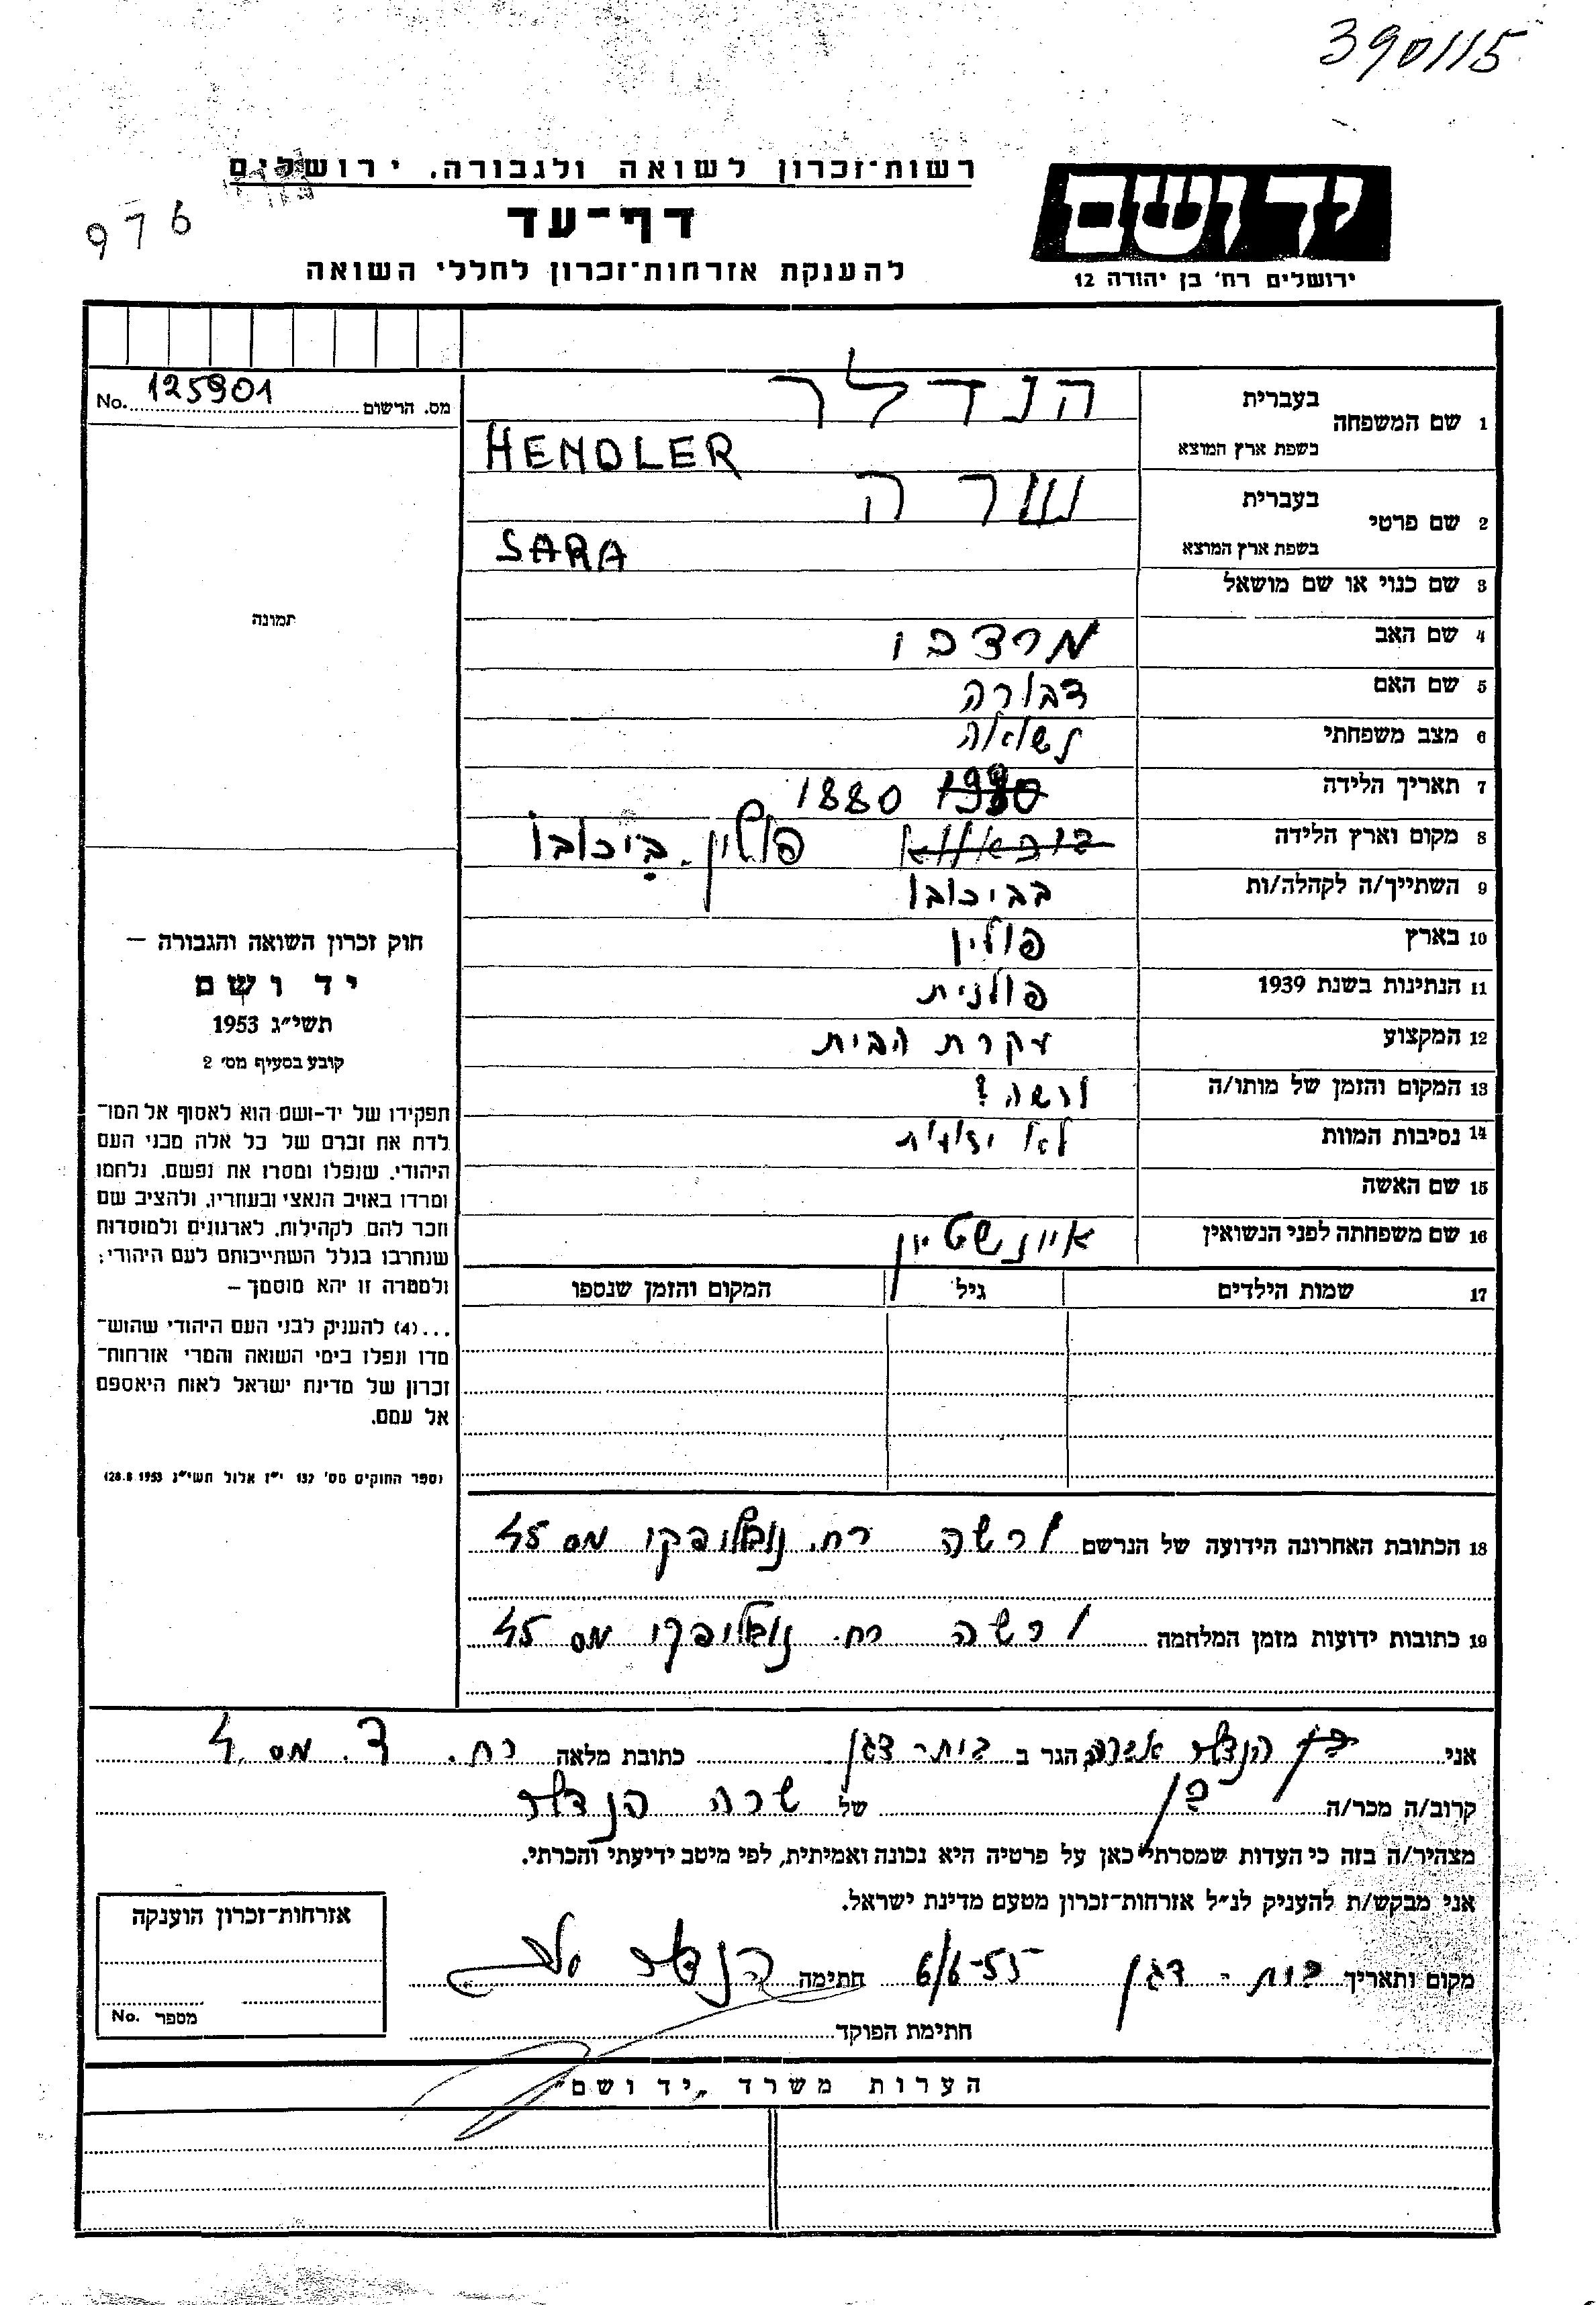 390115
רשות-זכרון לשואה ולגבורה. ירושלים
יד ושם
ירושלים רח' בן יהודה 12
דף-עד
976
להענקת אזרחות-זכרון לחללי השואה
מס. הרשום No. 125901
1 שם המשפחה בעברית הנדלר
בשפת ארץ המוצא HENDLER
2 שם פרטי בעברית שרה
בשפת ארץ המוצא SARA
תמונה
3 שם כנוי או שם מושאל
4 שם האב מרדכי
5 שם האם דבורה
6 מצב משפחתי נשואה
7 תאריך הלידה 1880
8 מקום וארץ הלידה פולין. ביכובו
9 השתייך/ה לקהלה/ות בביכובו
10 בארץ פולין
11 הנתינות בשנת 1939 פולנית
12 המקצוע עקרת הבית
13 המקום והזמן של מותו/ה ורשה ?
14 נסיבות המוות לא ידועות
15 שם האשה
16 שם משפחתה לפני הנשואין איינשטיין
17 שמות הילדים גיל המקום והזמן שנספו
18 הכתובת האחרונה הידועה של הנרשם ורשה רח. נובוליפקי מס 45
19 כתובות ידועות מזמן המלחמה ורשה רח. נובוליפקי מס 45
חוק זכרון השואה והגבורה –
יד ושם
תשי"ג 1953
קובע בסעיף מס' 2
תפקידו של יד-ושם הוא לאסוף אל המו-
לדת את זכרם של כל אלה מבני העם
היהודי, שנפלו ומסרו את נפשם, נלחמו
ומרדו באויב הנאצי ובעוזריו, ולהציב שם
וזכר להם לקהילות, לארגונים ולמוסדות
שנחרבו בגלל השתייכותם לעם היהודי;
ולמטרה זו יהא מוסמך –
...(4) להעניק לבני העם היהודי שהוש-
מדו ונפלו בימי השואה והמרי אזרחות-
זכרון של מדינת ישראל לאות היאספם
אל עמם.
(ספר החוקים מס' 132 י"ז אלול תשי"ג 28.8.1953)
אני הנדלר הגר ב בית-דגן כתובת מלאה רח. ד. מס 4
קרוב/ה מכר/ה בן של שרה הנדלר
מצהיר/ה בזה כי העדות שמסרתי כאן על פרטיה היא נכונה ואמיתית, לפי מיטב ידיעתי והכרתי.
אני מבקש/ת להעניק לנ"ל אזרחות-זכרון מטעם מדינת ישראל.
מקום ותאריך בית-דגן 6/6-55 חתימה הנדלר
חתימת הפוקד
אזרחות-זכרון הוענקה
מספר No.
הערות משרד "יד ושם"